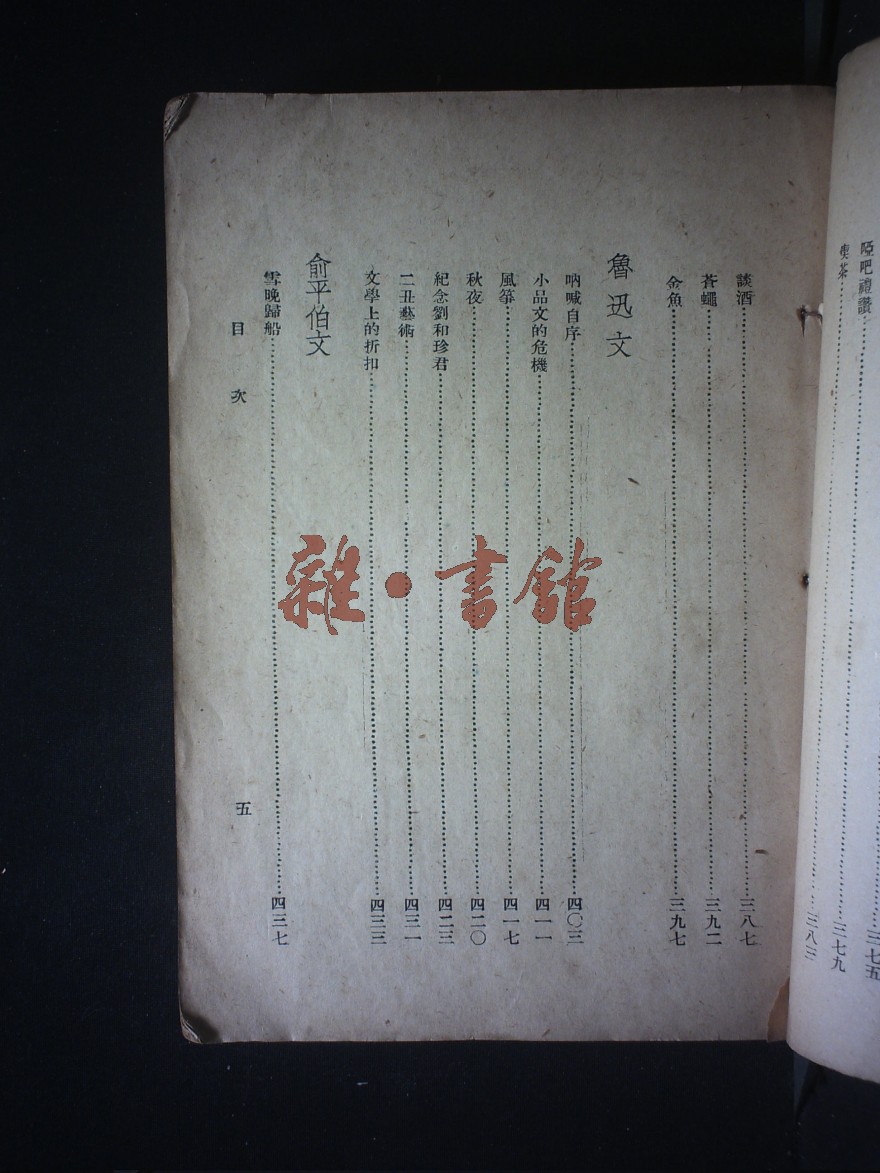 啞吧禮讚……三七五
喫茶……三七九
三八三
談酒……三八七
蒼蠅……三九二
金魚……三九七
魯迅文
吶喊自序……四〇三
小品文的危機……四一一
風箏……四一七
秋夜……四二〇
紀念劉和珍君……四二三
二丑藝術……四三一
文學上的折扣……四三三
俞平伯文
雪晚歸船……四三七
目次
五
雜·書館